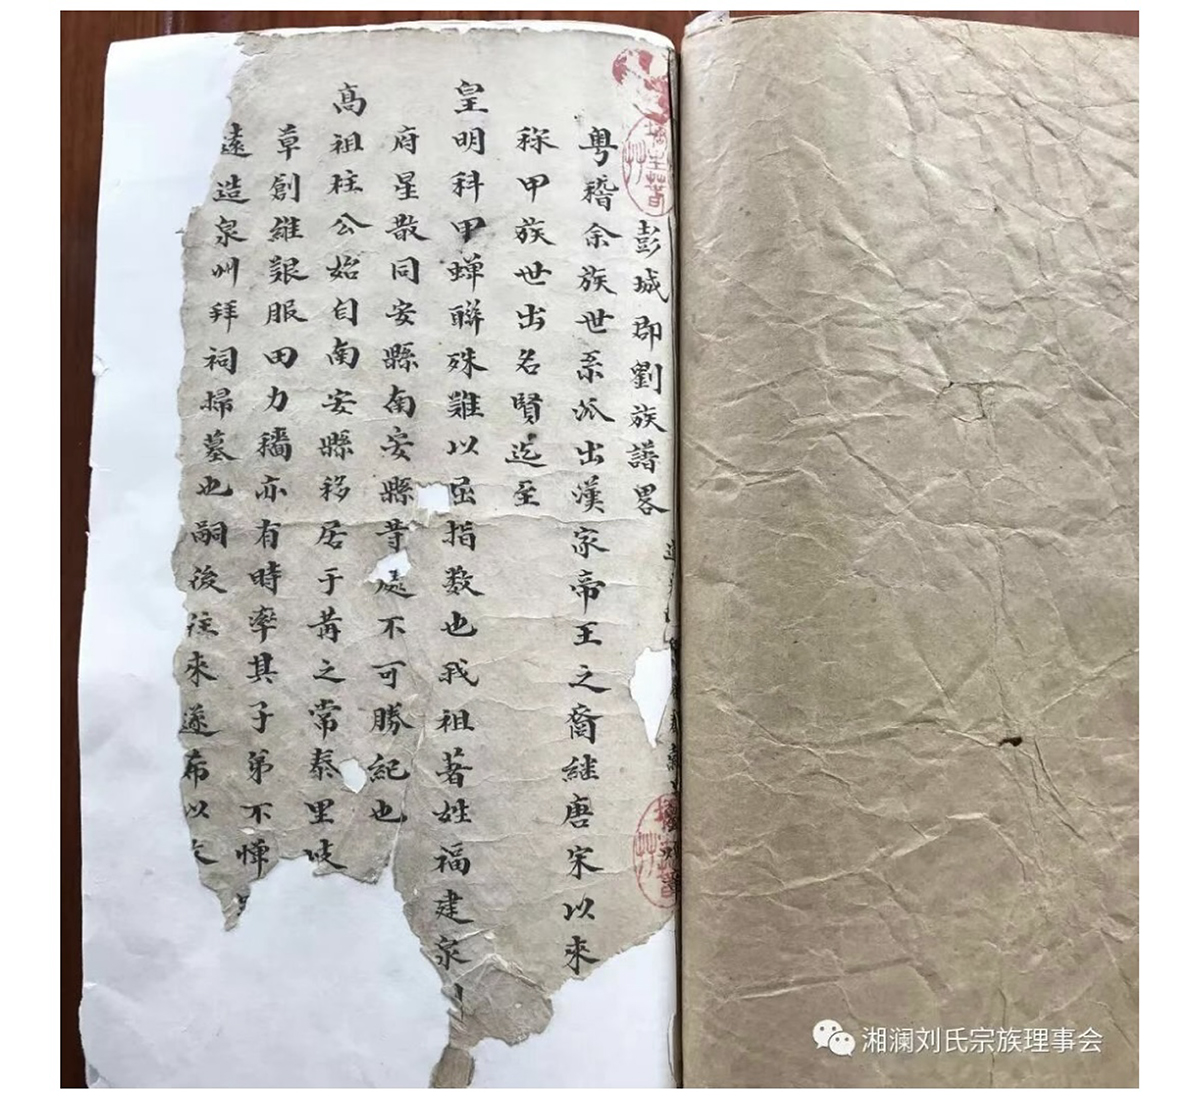 彭城郡劉族譜畧
粤稽余族世系派出漢家帝王之裔継唐宋以來
称甲族世出名賢迄至
皇明科甲蝉聯殊難以屈指数也我祖著姓福建泉
府星散同安縣南安縣等處不可勝紀也
高祖柱公始自南安縣移居于莆之常泰里坡
草創維艱服田力穡亦有時率其子弟不憚
遠造泉州拜祠掃墓也嗣後往來遂希以
湘澜刘氏宗族理事会